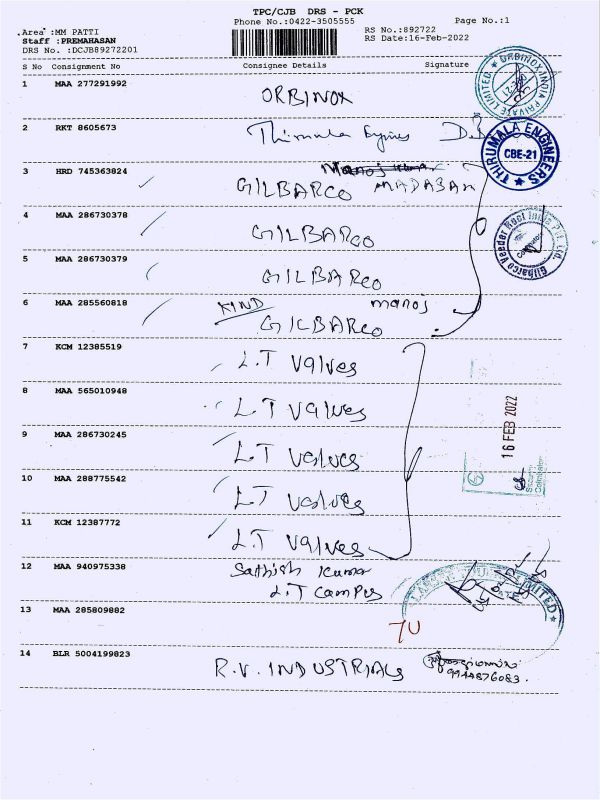 TPC/CJB DRS - PCK
Phone No.:0422-3505555
Page No.:1
Area :MM PATTI
RS No.:892722
Staff :PREMAHASAN
RS Date:16-Feb-2022
DRS No. :DCJB89272201
S No Consignment No Consignee Details Signature
1 MAA 277291992 ORBINOX
ORBINOX INDIA PRIVATE LIMITED
2 RKT 8605673
THIRUMALA ENGINEERS
CBE-21
3 HRD 745363824 GILBARCO MADASAN
4 MAA 286730378 GILBARCO
Gilbarco Veeder Root India Pvt. Ltd.
5 MAA 286730379 GILBARCO
6 MAA 285560818 KIND GILBARCO manoj
7 KCM 12385519 L.T Valves
8 MAA 565010948 L.T Valves
16 FEB 2022
9 MAA 286730245 L.T Valves
10 MAA 288775542 L.T Valves
Security
Coimbatore
11 KCM 12387772 L.T Valves
12 MAA 940975338 Sathish Kumar
L.T Campus
LIMITED
13 MAA 285809882
TU
14 BLR 5004199823 R.V. INDUSTRIALS
9944876083.